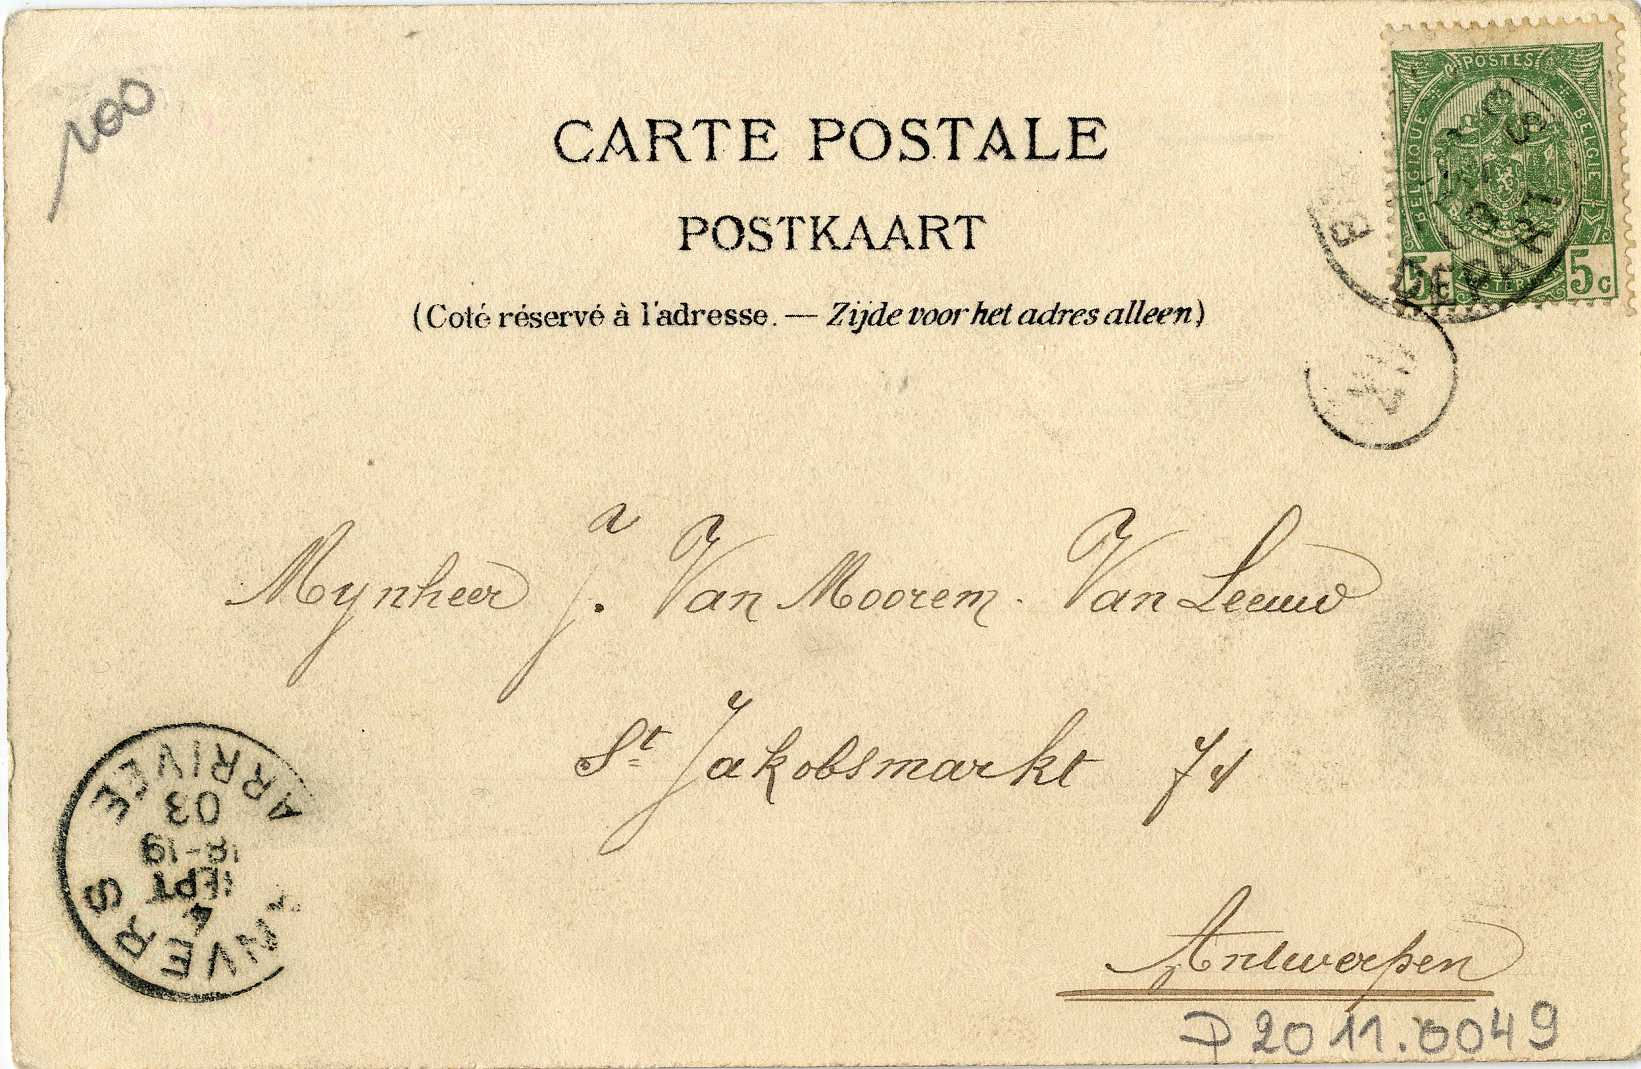 100
CARTE POSTALE
POSTKAART
(Coté réservé à l'adresse. — Zijde voor het adres alleen)
POSTES
BELGIQUE
BELGIE
5
5c
DEPART
Mynheer J. Van Moorem. Van Leeuw
St Jakobsmarkt 74
Antwerpen
ANVERS
4
SEPT
18-19
03
ARRIVEE
P2011.0049